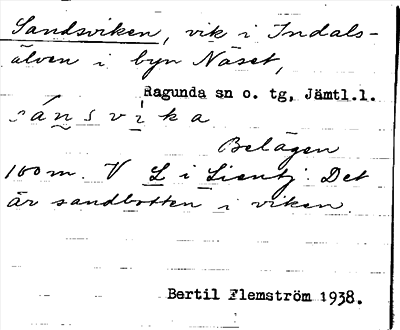 Sandsviken, vik i Indals-
älven i byn Näset,
Ragunda sn o. tg, Jämtl.l.
sánsvika
Belägen
100 m. V L i Lientj. Det
är sandbotten i viken.
Bertil Flemström 1938.